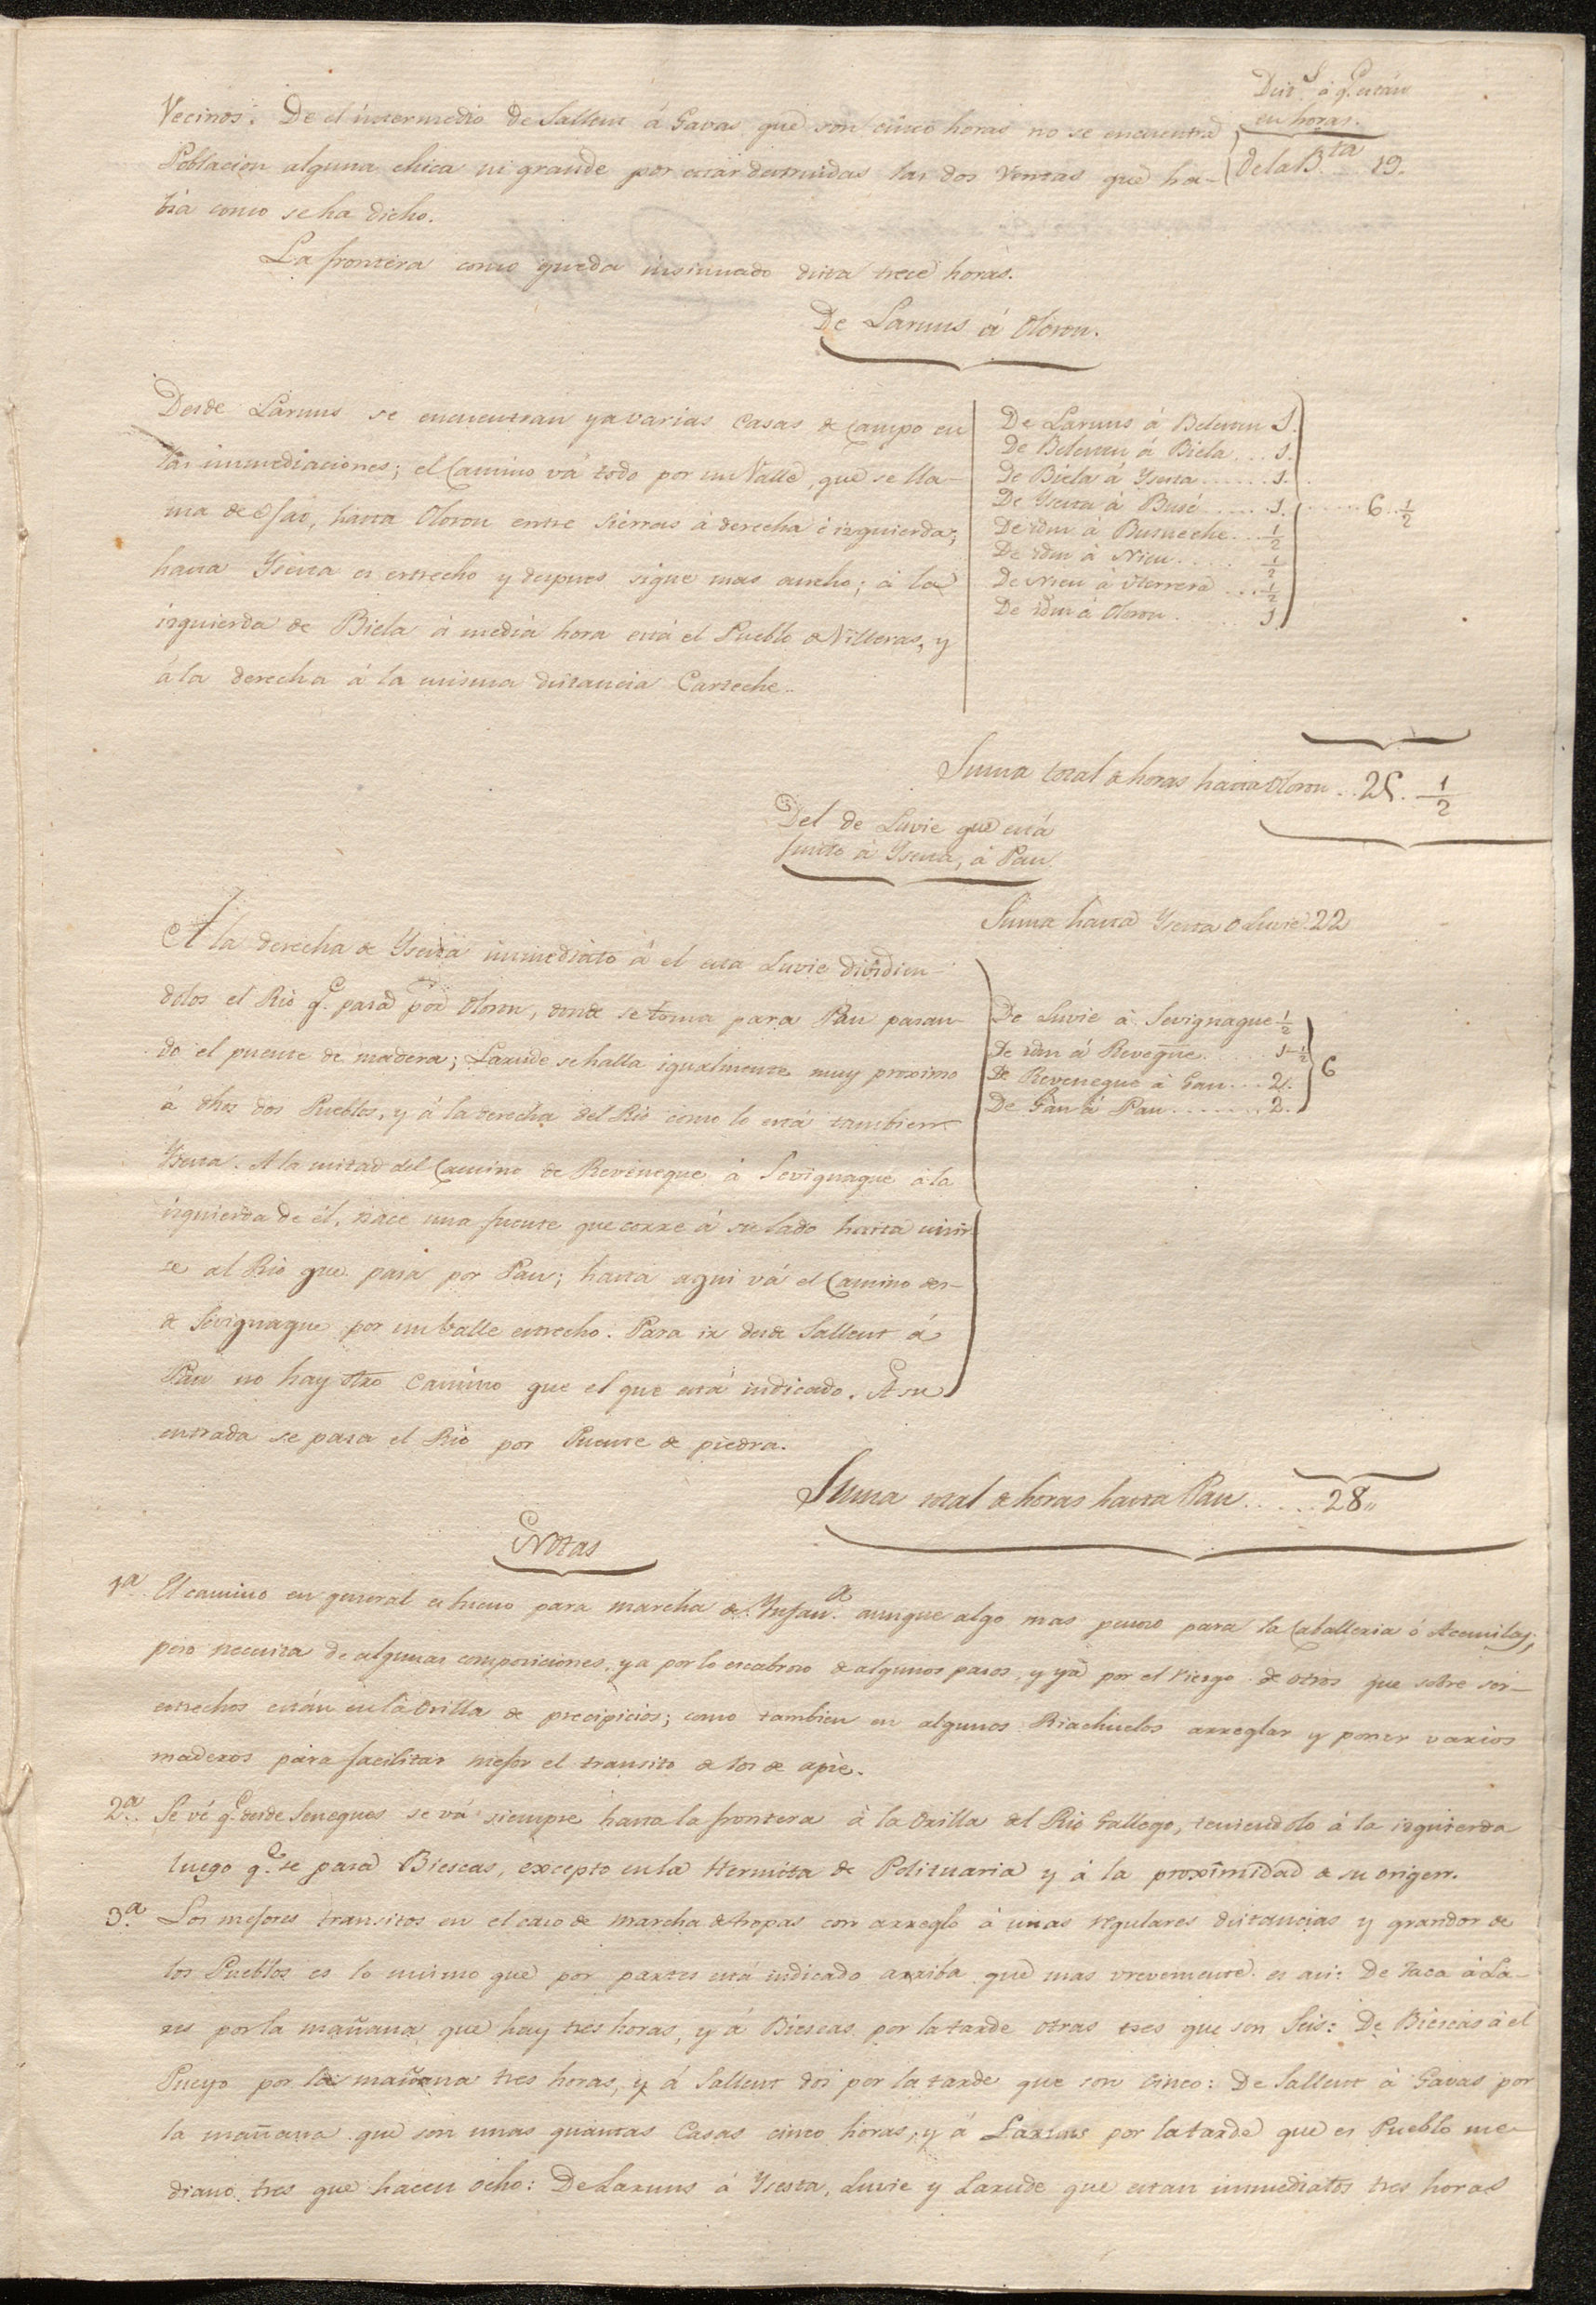 Dist.s á q.e están
en horas.
Vecinos. De el intermedio de Sallent á Gavas que son cinco horas no se encuentra
Poblacion alguna chica ni grande por estar destruidas las dos Ventas que ha-
bia como se ha dicho.
de la B.ta 19.
La frontera como queda insinuado dista trece horas.
De Laruns á Oloron.
Desde Laruns se encuentran ya varias Casas de Campo en
las inmediaciones; el Camino vá todo por un Valle, que se lla-
ma de Osao, hasta Oloron entre sierras á derecha é izquierda;
hasta Ysesta es estrecho y despues sigue mas ancho; á la
izquierda de Biela á media hora está el Pueblo de Villeras, y
á la derecha á la misma distancia Casteche.
De Laruns á Belestin 1.
De Belestin á Biela ... 1.
De Biela á Ysesta ...... 1.
De Ysesta á Busé ..... 1.
De idm á Busueche ... 1/2
De idm á Nieu ..... 1/2
De Nieu á Herrera .... 1/2
De idm á Oloron ...... 1
...... 6. 1/2
Suma total de horas hasta Oloron .. 25. 1/2
Del de Luvie que está
junto á Ysesta, á Pau.
Suma hasta Ysesta o Luvie. 22
A la derecha de Ysesta inmediato á el esta Luvie dividien-
dolos el Rio q.e pasa por Oloron, donde se toma para Pau pasan-
do el puente de madera; Larude se halla igualmente muy proximo
á dhos dos Pueblos, y á la derecha del Rio como lo está tambien
Ysesta. A la mitad del Camino de Reveneque á Sevignaque á la
izquierda de él, nace una fuente que corre á su lado hasta unir
se al Rio que pasa por Pau; hasta aqui vá el Camino des-
de Sevignaque por un Valle estrecho. Para ir desde Sallent á
Pau no hay otro Camino que el que está indicado. A su
entrada se pasa el Rio por Puente de piedra.
De Luvie á Sevignague 1/2
De idm á Revegue ...... 1-1/2
De Revenegue á Gan ... 2.
De Gan á Pau ........ 2.
6
Suma total de horas hasta Pau ..... 28,,
Notas
1.a El camino en general es bueno para marcha de Ynfan.a aunque algo mas penoso para la Caballeria ó Acemilas;
pero necesita de algunas composiciones, ya por lo escabroso de algunos pasos, y ya por el riesgo de otros que sobre ser
estrechos están en la Orilla de precipicios; como tambien en algunos Riachuelos arreglar y poner varios
maderos para facilitar mejor el transito de los de apie.
2.a Se vé q.e desde Senegues se vá siempre hasta la frontera á la Orilla del Rio Gallego, teniendolo á la izquierda
luego q.e se pasa Biescas, excepto en la Hermita de Polituaria y á la proximidad de su origen.
3.a Los mejores transitos en el caso de marcha de tropas con arreglo á unas regulares distancias y grandor de
los Pueblos es lo mismo que por partes está indicado arriba que mas vrevemente es asi: De Jaca á La-
res por la mañana que hay tres horas, y á Biescas por la tarde otras tres que son Seis: De Biescas á el
Pueyo por la mañana tres horas, y á Sallent dos por la tarde que son Cinco: De Sallent á Gavas por
la mañana que son unas quantas Casas cinco horas, y á Laruns por la tarde que es Pueblo me-
diano tres que hacen ocho: De Laruns á Ysesta, Luvie y Larude que estan inmediatos tres horas